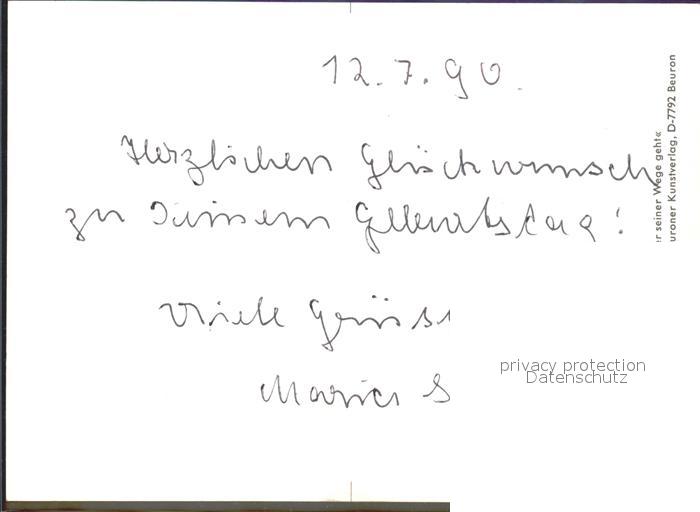 12.7.90.
Herzlichen Glückwunsch
zu Deinem Geburtstag!
Viele Grüsse
Maria S
r seiner Wege geht«
uroner Kunstverlag, D-7792 Beuron
privacy protection
Datenschutz